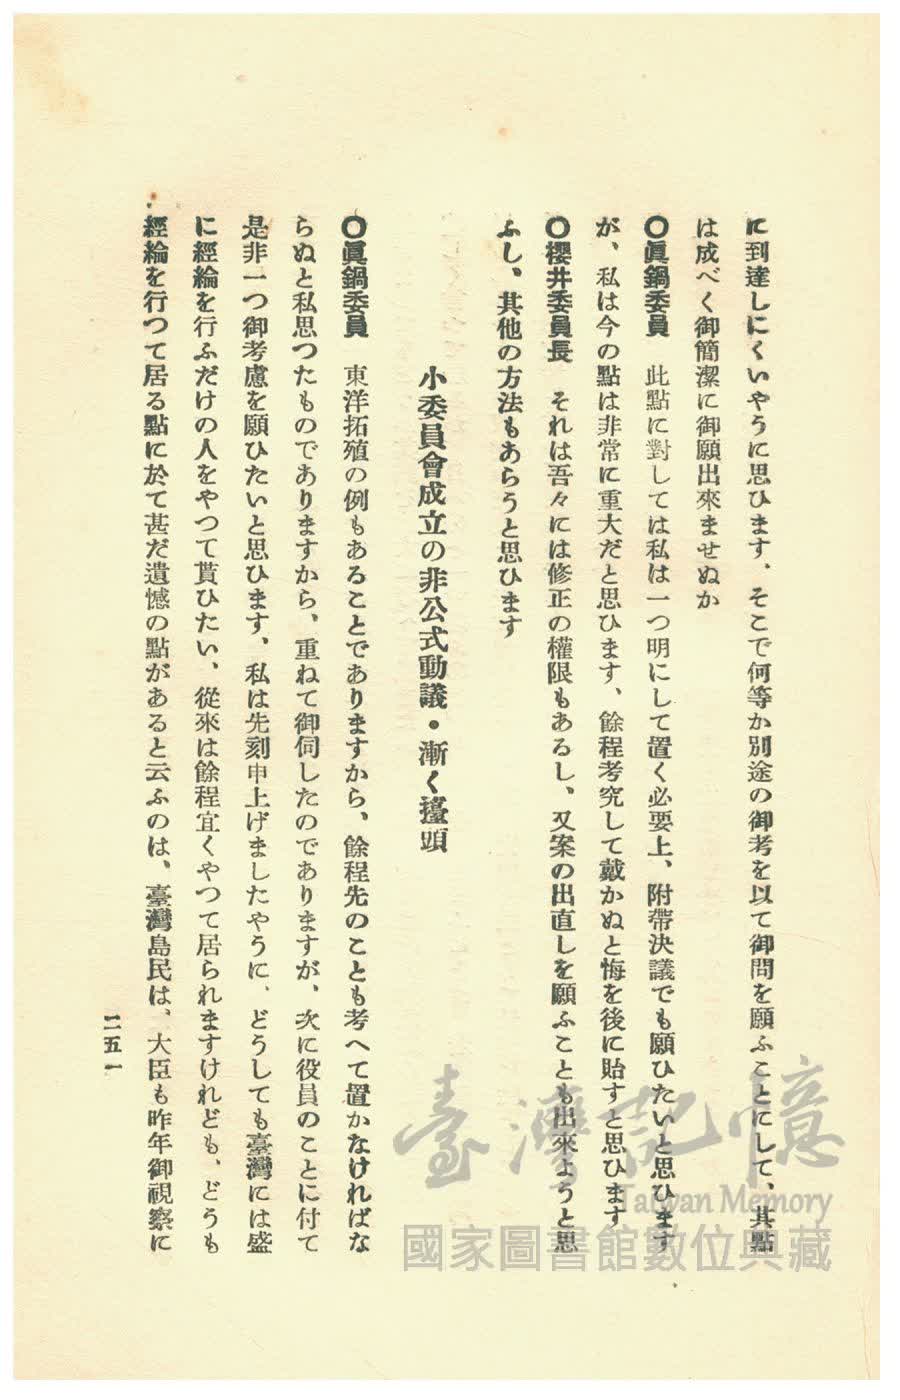 に到達しにくいやうに思ひます、そこで何等か別途の御考を以て御問を願ふことにして、其點
は成べく御簡潔に御願出來ませぬか
〇眞鍋委員　此點に對しては私は一つ明にして置く必要上、附帶決議でも願ひたいと思ひます
が、私は今の點は非常に重大だと思ひます、餘程考究して戴かぬと悔を後に貽すと思ひます
〇櫻井委員長　それは吾々には修正の權限もあるし、又案の出直しを願ふことも出來ようと思
ふし、其他の方法もあらうと思ひます
小委員會成立の非公式動議・漸く擡頭
〇眞鍋委員　東洋拓殖の例もあることでありますから、餘程先のことも考へて置かなければな
らぬと私思つたものでありますから、重ねて御伺したのでありますが、次に役員のことに付て
是非一つ御考慮を願ひたいと思ひます、私は先刻申上げましたやうに、どうしても臺灣には盛
に經綸を行ふだけの人をやつて貰ひたい、從來は餘程宜くやつて居られますけれども、どうも
經綸を行つて居る點に於て甚だ遺憾の點があると云ふのは、臺灣島民は、大臣も昨年御視察に
二五一
臺灣記憶
Taiwan Memory
國家圖書館數位典藏